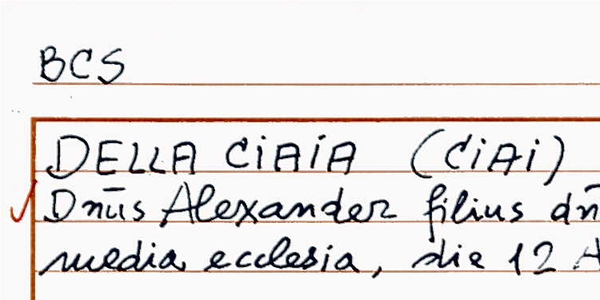 BCS
DELLA CIAIA (CIAI)
Dnūs Alexander filius dn̄
media ecclesia, die 12 A